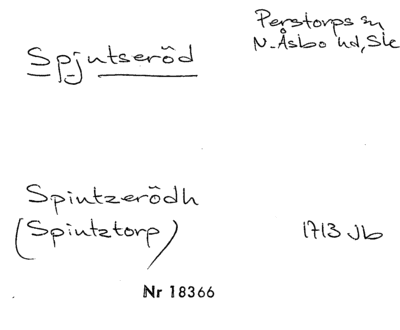 Spjutseröd
Perstorps sn
N. Åsbo hd, Sk
Spintzerödh
(Spintztorp)
1713 Jb
Nr 18366